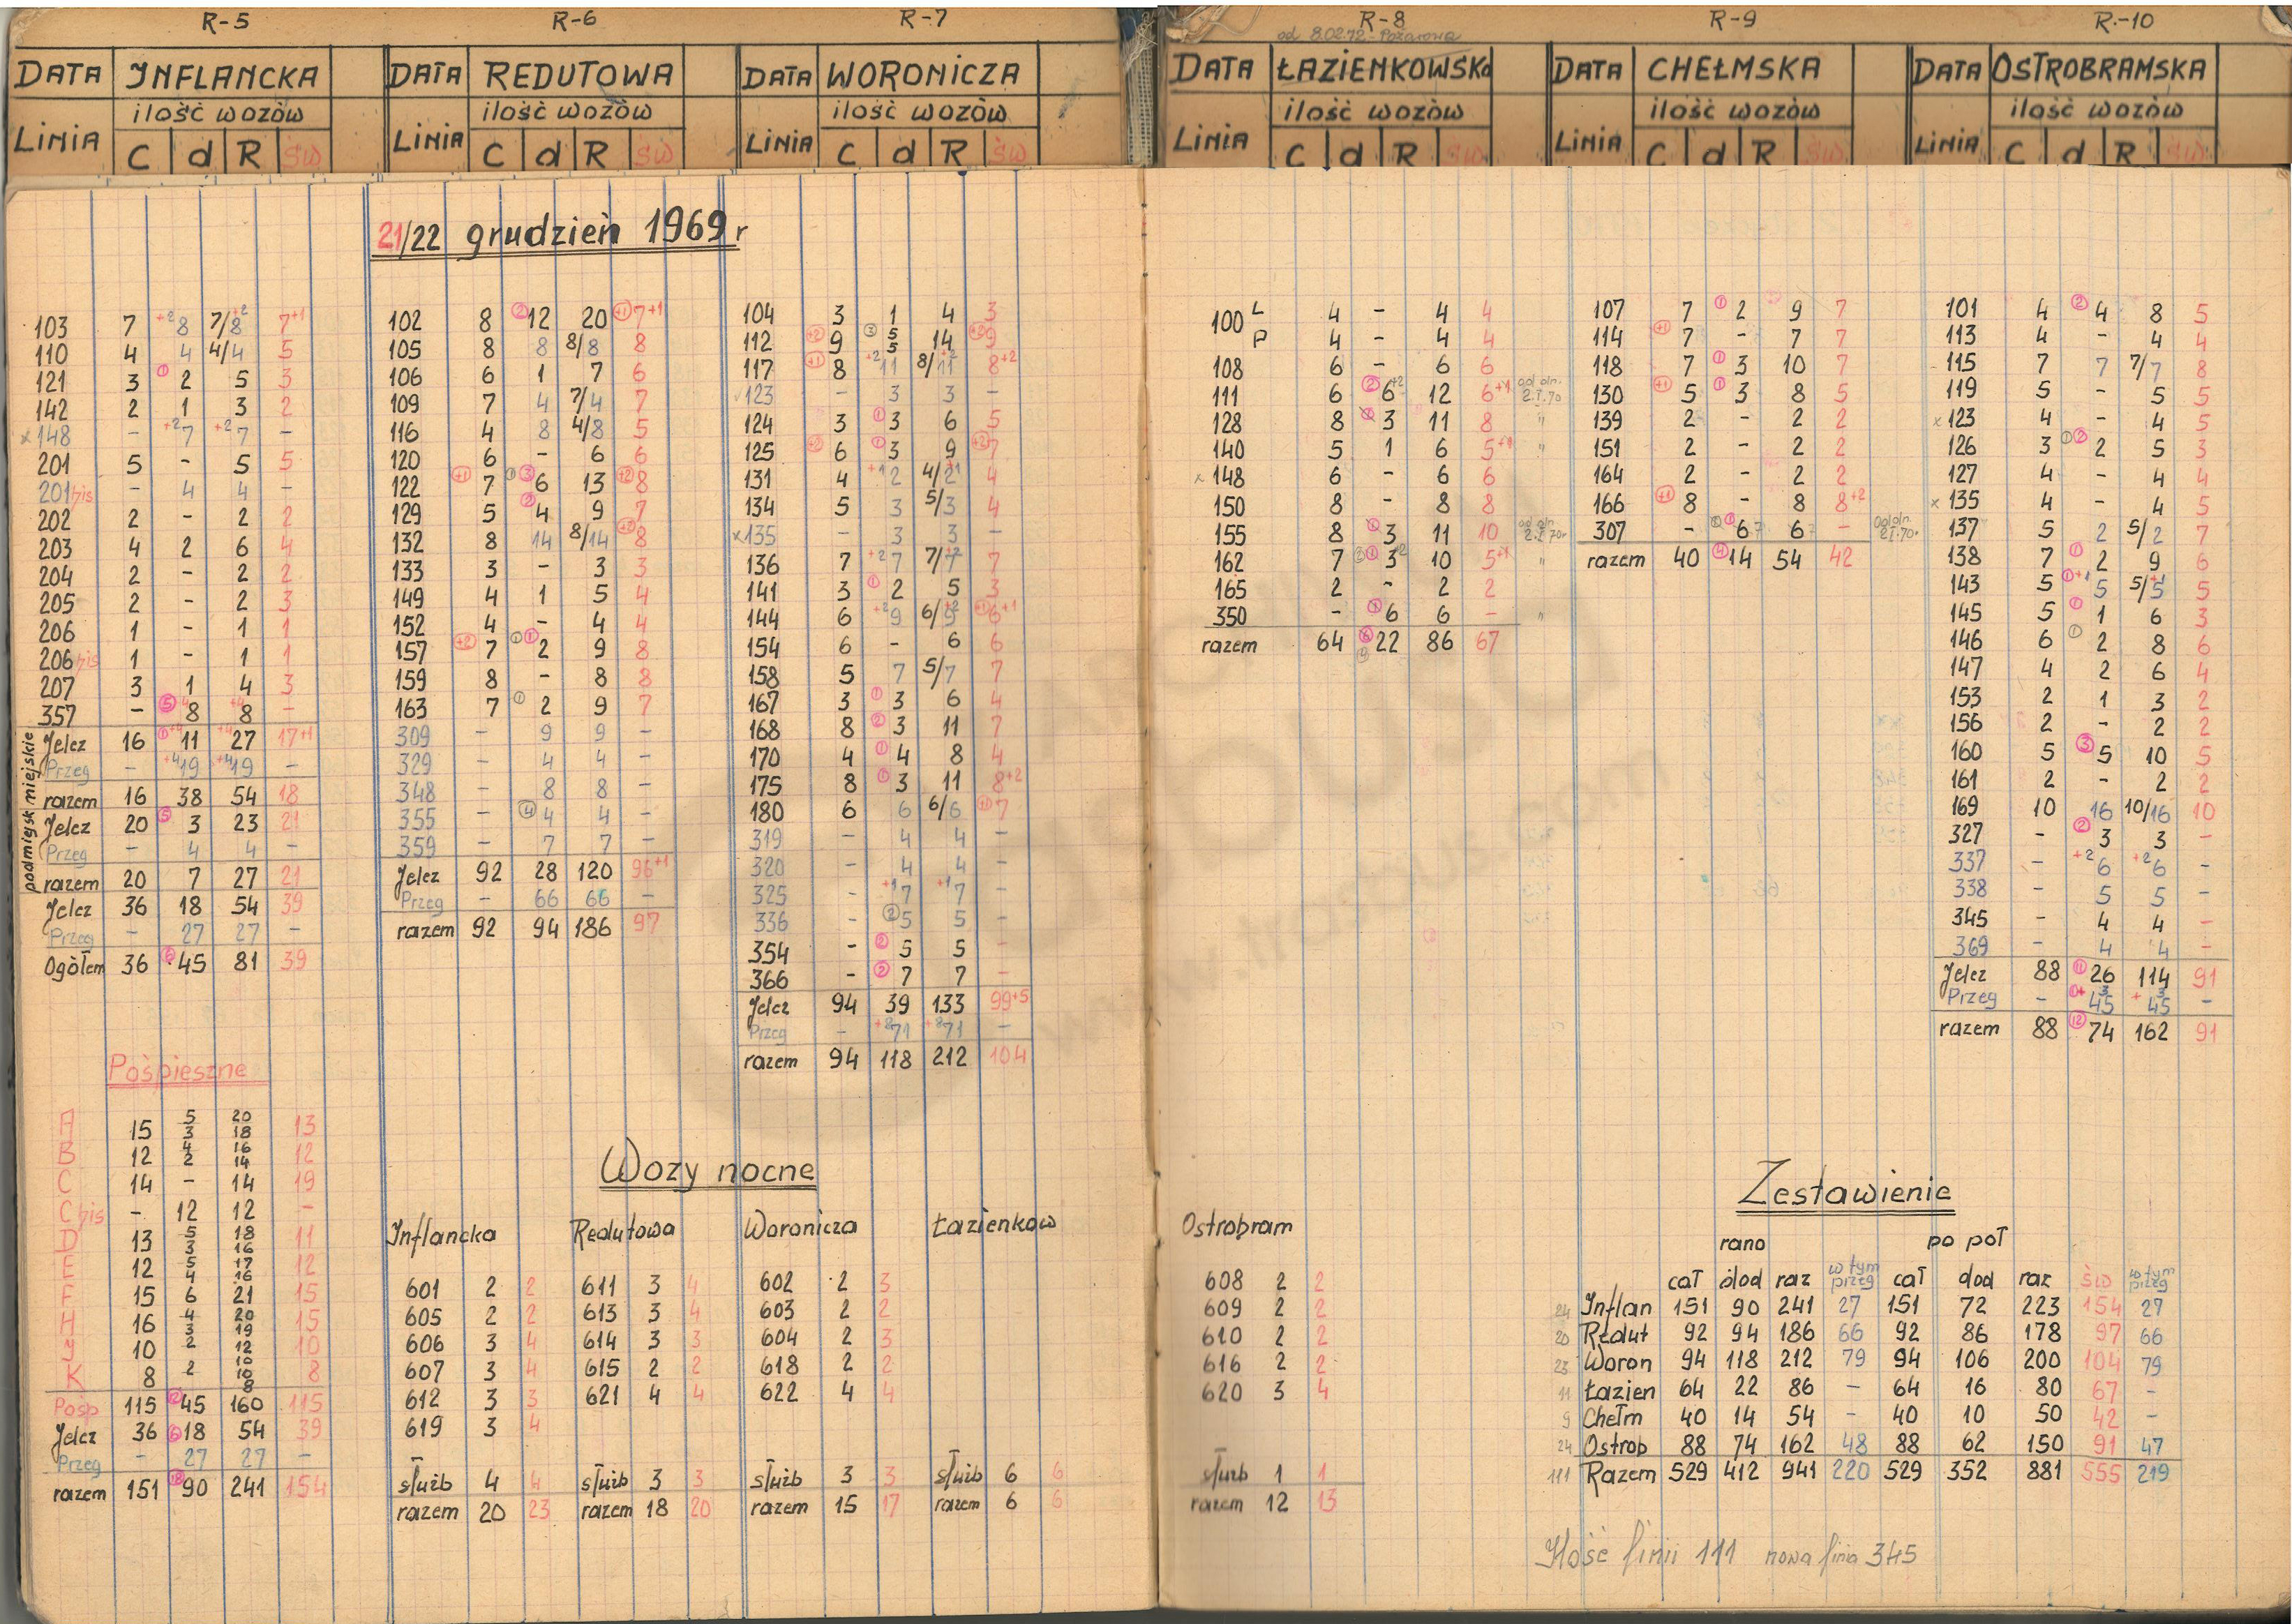 R-5
DATA INFLANCKA
ilość wozów
LINIA C d R św
R-6
DATA REDUTOWA
ilość wozów
LINIA C d R św
R-7
DATA WORONICZA
ilość wozów
LINIA C d R św
R-8
od 8.02.72 - Pożarowa
DATA ŁAZIENKOWSKa
ilość wozów
LINIA C d R św
R-9
DATA CHEŁMSKA
ilość wozów
LINIA C d R św
R-10
DATA OSTROBRAMSKA
ilość wozów
LINIA C d R św
21/22 grudzień 1969 r
103 7 +2 8 7/8 +2 7+1
110 4 4 4/4 5
121 3 ① 2 5 3
142 2 1 3 2
x 148 - +2 7 +2 7 -
201 5 - 5 5
201 bis - 4 4 -
202 2 - 2 2
203 4 2 6 4
204 2 - 2 2
205 2 - 2 3
206 1 - 1 1
206 bis 1 - 1 1
207 3 1 4 3
357 - ⑤ 8 8 -
podmiejsk miejskie
Jelcz 16 ① +4 11 +4 27 17+1
Przeg - +4 19 +4 19 -
razem 16 38 54 18
Jelcz 20 ⑤ 3 23 21
Przeg - 4 4 -
razem 20 7 27 21
Jelcz 36 18 54 39
Przeg - 27 27 -
Ogółem 36 ⑥ 45 81 39
Pośpieszne
A 15 5 3 20 18 13
B 12 4 2 16 14 12
C 14 - 14 19
C bis - 12 12 -
D 13 5 3 18 16 11
E 12 5 4 17 16 12
F 15 6 21 15
H 16 4 3 20 19 15
J 10 2 12 10
K 8 2 10 8 8
Pośp 115 ⑫ 45 160 115
Jelcz 36 ⑥ 18 54 39
Przeg - 27 27 -
razem 151 ⑱ 90 241 154
102 8 ② 12 20 +1 7+1
105 8 8 8/8 8
106 6 1 7 6
109 7 4 7/4 7
116 4 8 4/8 5
120 6 - 6 6
122 +1 7 ① ③ 6 13 +2 8
129 5 ② 4 9 7
132 8 14 8/14 +2 8
133 3 - 3 3
149 4 1 5 4
152 4 - 4 4
157 +2 7 ① ① 2 9 8
159 8 - 8 8
163 7 ① 2 9 7
309 - 9 9 -
329 - 4 4 -
348 - 8 8 -
355 - ④ 4 4 -
359 - 7 7 -
Jelcz 92 28 120 96+1
Przeg - 66 66 -
razem 92 94 186 97
104 3 1 4 3
112 +2 9 ③ 5 5 14 +2 9
117 +1 8 +2 11 8/11 +2 8+2
123 - 3 3 -
124 3 ① 3 6 5
125 6 ① 3 9 +2 7
131 4 +1 2 4/2 +1 4
134 5 3 5/3 4
x 135 - 3 3 -
136 7 +2 7 7/7 +2 7
141 3 ① 2 5 3
144 6 +2 9 6/9 +2 +1 6+1
154 6 - 6 6
158 5 7 5/7 7
167 3 ① 3 6 4
168 8 ② 3 11 7
170 4 ① 4 8 4
175 8 ① 3 11 8+2
180 6 6 6/6 +1 7
319 - 4 4 -
320 - 4 4 -
325 - +1 7 +1 7 -
336 - ② 5 5 -
354 - ② 5 5 -
366 - ② 7 7 -
Jelcz 94 39 133 99+5
Przeg - +8 71 +8 71 -
razem 94 118 212 104
Wozy nocne
Inflancka
601 2 2
605 2 2
606 3 4
607 3 4
612 3 3
619 3 4
służb 4 4
razem 20 23
Redutowa
611 3 4
613 3 4
614 3 3
615 2 2
621 4 4
służb 3 3
razem 18 20
Woronicza
602 2 3
603 2 2
604 2 3
618 2 2
622 4 4
służb 3 3
razem 15 17
Łazienkow
służb 6 6
razem 6 6
100 L 4 - 4 4
P 4 - 4 4
108 6 - 6 6
111 6 ② 6 +2 12 6+1 od dn. 2.I.70
128 8 ① 3 11 8 "
140 5 1 6 5+1 "
x 148 6 - 6 6
150 8 - 8 8
155 8 ① 3 11 10 od dn. 2.I.70r
162 7 ③ ① 3 +2 10 5+1 "
165 2 - 2 2
350 - ① 6 6 - "
razem 64 ⑥ 22 86 67
107 7 ① 2 9 7
114 +1 7 - 7 7
118 7 ① 3 10 7
130 +1 5 ① 3 8 5
139 2 - 2 2
151 2 - 2 2
164 2 - 2 2
166 +1 8 - 8 8+2
307 - ① 6 7 6 7 - od dn. 2.I.70r
razem 40 ④ 14 54 42
101 4 ② 4 8 5
113 4 - 4 4
115 7 7 7/7 8
119 5 - 5 5
x 123 4 - 4 5
126 3 ① ② 2 5 3
127 4 - 4 4
x 135 4 - 4 5
137 5 2 5/2 7
138 7 ① 2 9 6
143 5 ① +1 5 5/5 +1 5
145 5 ① 1 6 3
146 6 ① 2 8 6
147 4 2 6 4
153 2 1 3 2
156 2 - 2 2
160 5 ③ 5 10 5
161 2 - 2 2
169 10 16 10/16 10
327 - ② 3 3 -
337 - +2 6 +2 6 -
338 - 5 5 -
345 - 4 4 -
369 - 4 4 -
Jelcz 88 ⑪ 26 114 91
Przeg - ① +3 45 +3 45 -
razem 88 ⑫ 74 162 91
Ostrobram
608 2 2
609 2 2
610 2 2
616 2 2
620 3 4
służb 1 1
razem 12 13
Zestawienie
rano po poł
cał dod raz w tym przeg cał dod raz św w tym przeg
24 Inflan 151 90 241 27 151 72 223 154 27
20 Redut 92 94 186 66 92 86 178 97 66
23 Woron 94 118 212 79 94 106 200 104 79
11 Łazien 64 22 86 - 64 16 80 67 -
9 Chełm 40 14 54 - 40 10 50 42 -
24 Ostrob 88 74 162 48 88 62 150 91 47
111 Razem 529 412 941 220 529 352 881 555 219
Ilość linii 111 nowa linia 345